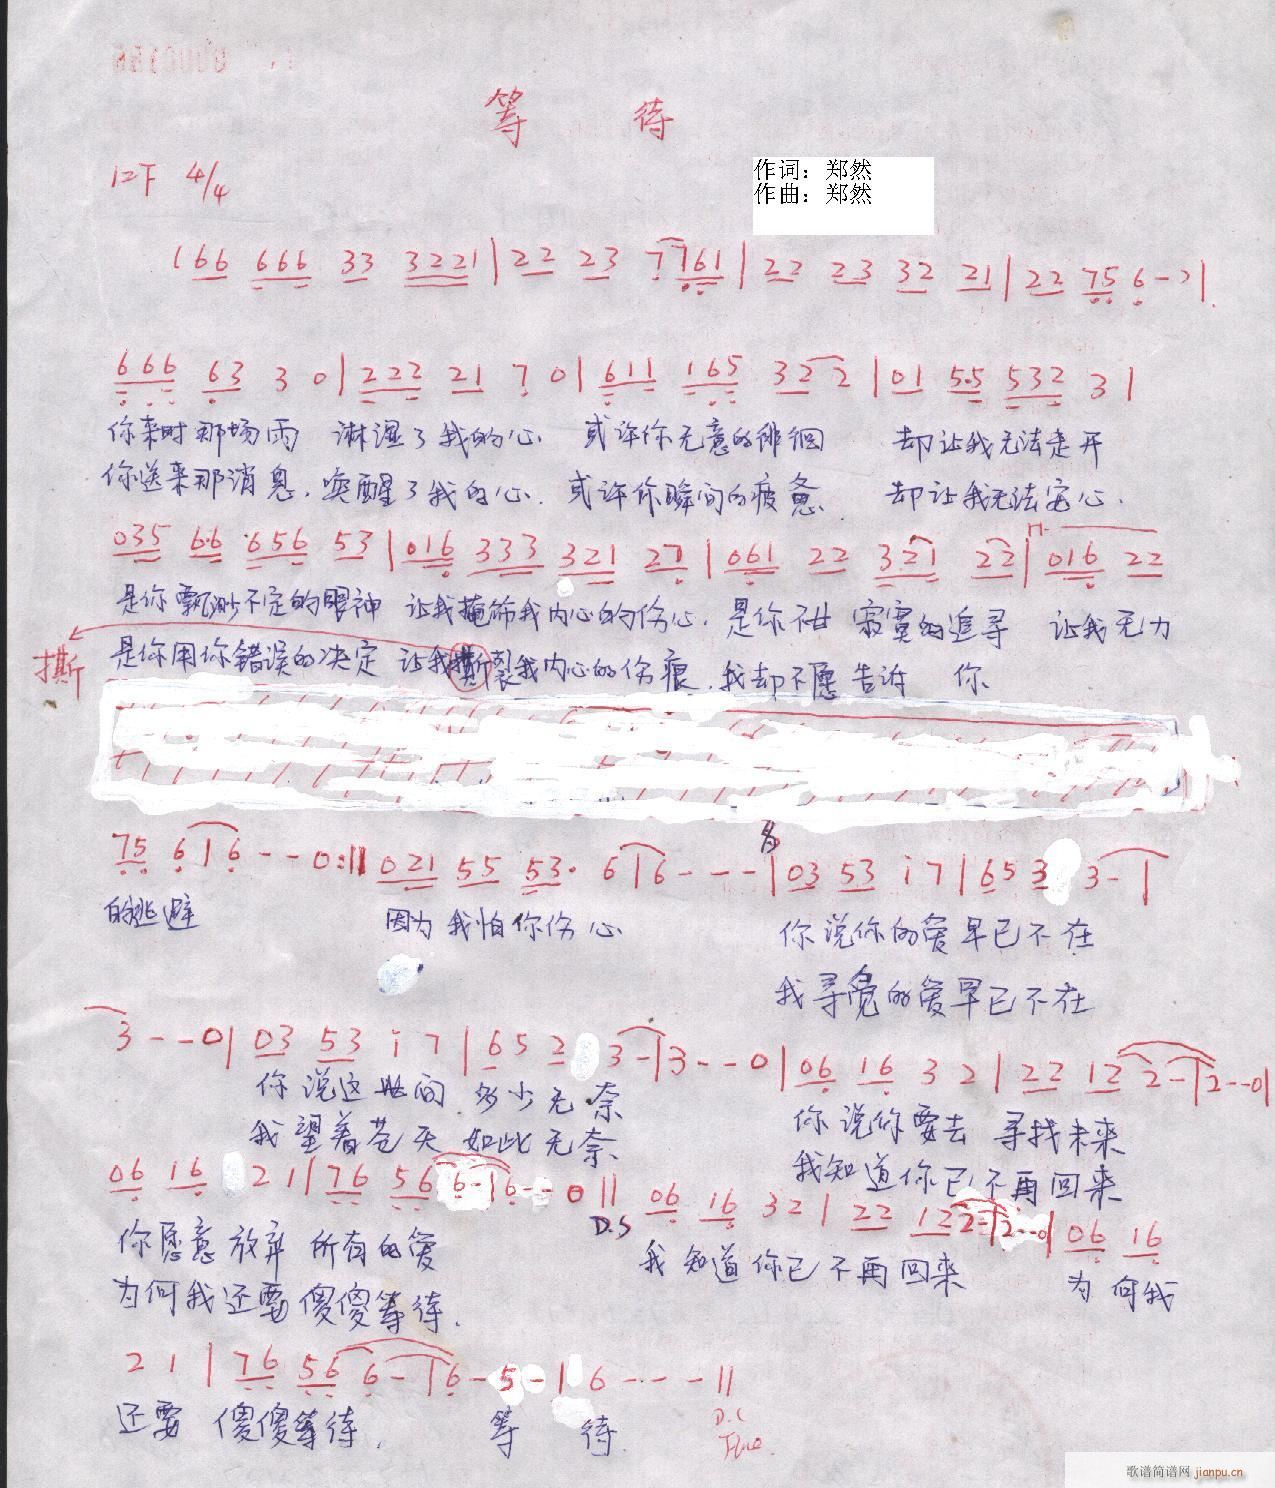 等 待
1=F 4/4
作词：郑然
作曲：郑然
166 666 33 3221 | 22 23 7 761 | 22 23 32 21 | 22 75 6 - - |
666 63 3 0 | 222 21 7 0 | 611 165 32 2 | 01 5·5 532 3 |
你来时那场雨 淋湿了我的心 或许你无意的徘徊 却让我无法走开
你送来那消息. 唤醒了我的心. 或许你瞬间的疲惫 却让我无法安心.
035 6·6 656 53 | 016 333 321 27 | 061 22 321 22 | 016 22
是你飘渺不定的眼神 让我掩饰我内心的伤心. 是你不甘 寂寞的追寻 让我无力
撕 是你用你错误的决定 让我撕裂我内心的伤痕. 我却不愿告诉 你
75 6 | 6 - - 0 :|| 021 55 53· 6 | 6 - - - | 03 53 i 7 | 65 3 3 - |
的逃避 因为我怕你伤心 你说你的爱早已不在
我寻觅的爱早已不在
3 - - 0 | 03 53 i 7 | 65 2 3 - | 3 - - 0 | 06 16 3 2 | 22 12 2 - | 2 - - 0 |
你说这世间 多少无奈 你说你要去 寻找未来
我望着苍天 如此无奈 我知道你已不再回来
06 16 2 1 | 76 56 6 - | 6 - - 0 || D.S 06 16 3 2 | 22 12 2 - | 2 - - 0 | 06 16
你愿意放弃 所有的爱 我知道你已不再回来 为何我
为何我还要傻傻等待.
2 1 | 76 56 6 - | 6 - 5 - | 6 - - - ||
还要 傻傻等待. 等 待 D.C
Fine.
歌谱简谱网 jianpu.cn